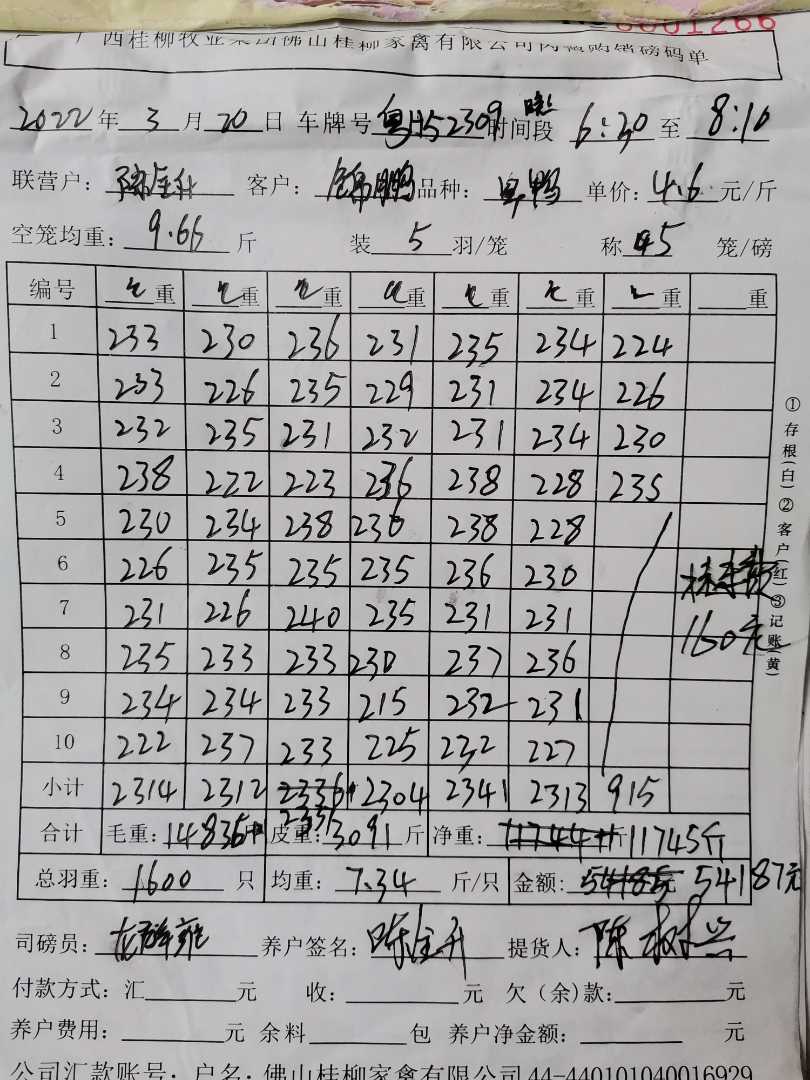 0001266
广西桂柳牧业集团佛山桂柳家禽有限公司肉鸭购销磅码单
2022年 3 月 20 日 车牌号 粤H52309 时间段 晚上 6:30 至 8:10
联营户: 陈金升 客户: 锦鹏 品种: 单价: 4.6 元/斤
空笼均重: 9.66 斤 装 5 羽/笼 称 45 笼/磅
编号 毛重 毛重 毛重 毛重 毛重 毛重 毛重 重
1 233 230 236 231 235 234 224
2 233 226 235 229 231 234 226
3 232 235 231 232 231 234 230
4 238 222 223 236 238 228 235
5 230 234 238 236 238 228
6 226 235 235 235 236 230
7 231 226 240 235 231 231
8 235 233 233 230 237 236
9 234 234 233 215 232 231
10 222 237 233 225 232 227
160元
小计 2314 2312 2336 2304 2341 2313 915
2337
合计 毛重: 14836斤 皮重: 3091 斤 净重: 11744斤 11745斤
总羽重: 1600 只 均重: 7.34 斤/只 金额: 54185元 54187元
司磅员: 养户签名: 陈金升 提货人: 陈树兴
付款方式: 汇 元 收: 元 欠(余)款: 元
养户费用: 元 余料 包 养户净金额: 元
公司汇款账号: 户名: 佛山桂柳家禽有限公司44-440101040016929
①存根(白)②客户(红)③记账(黄)